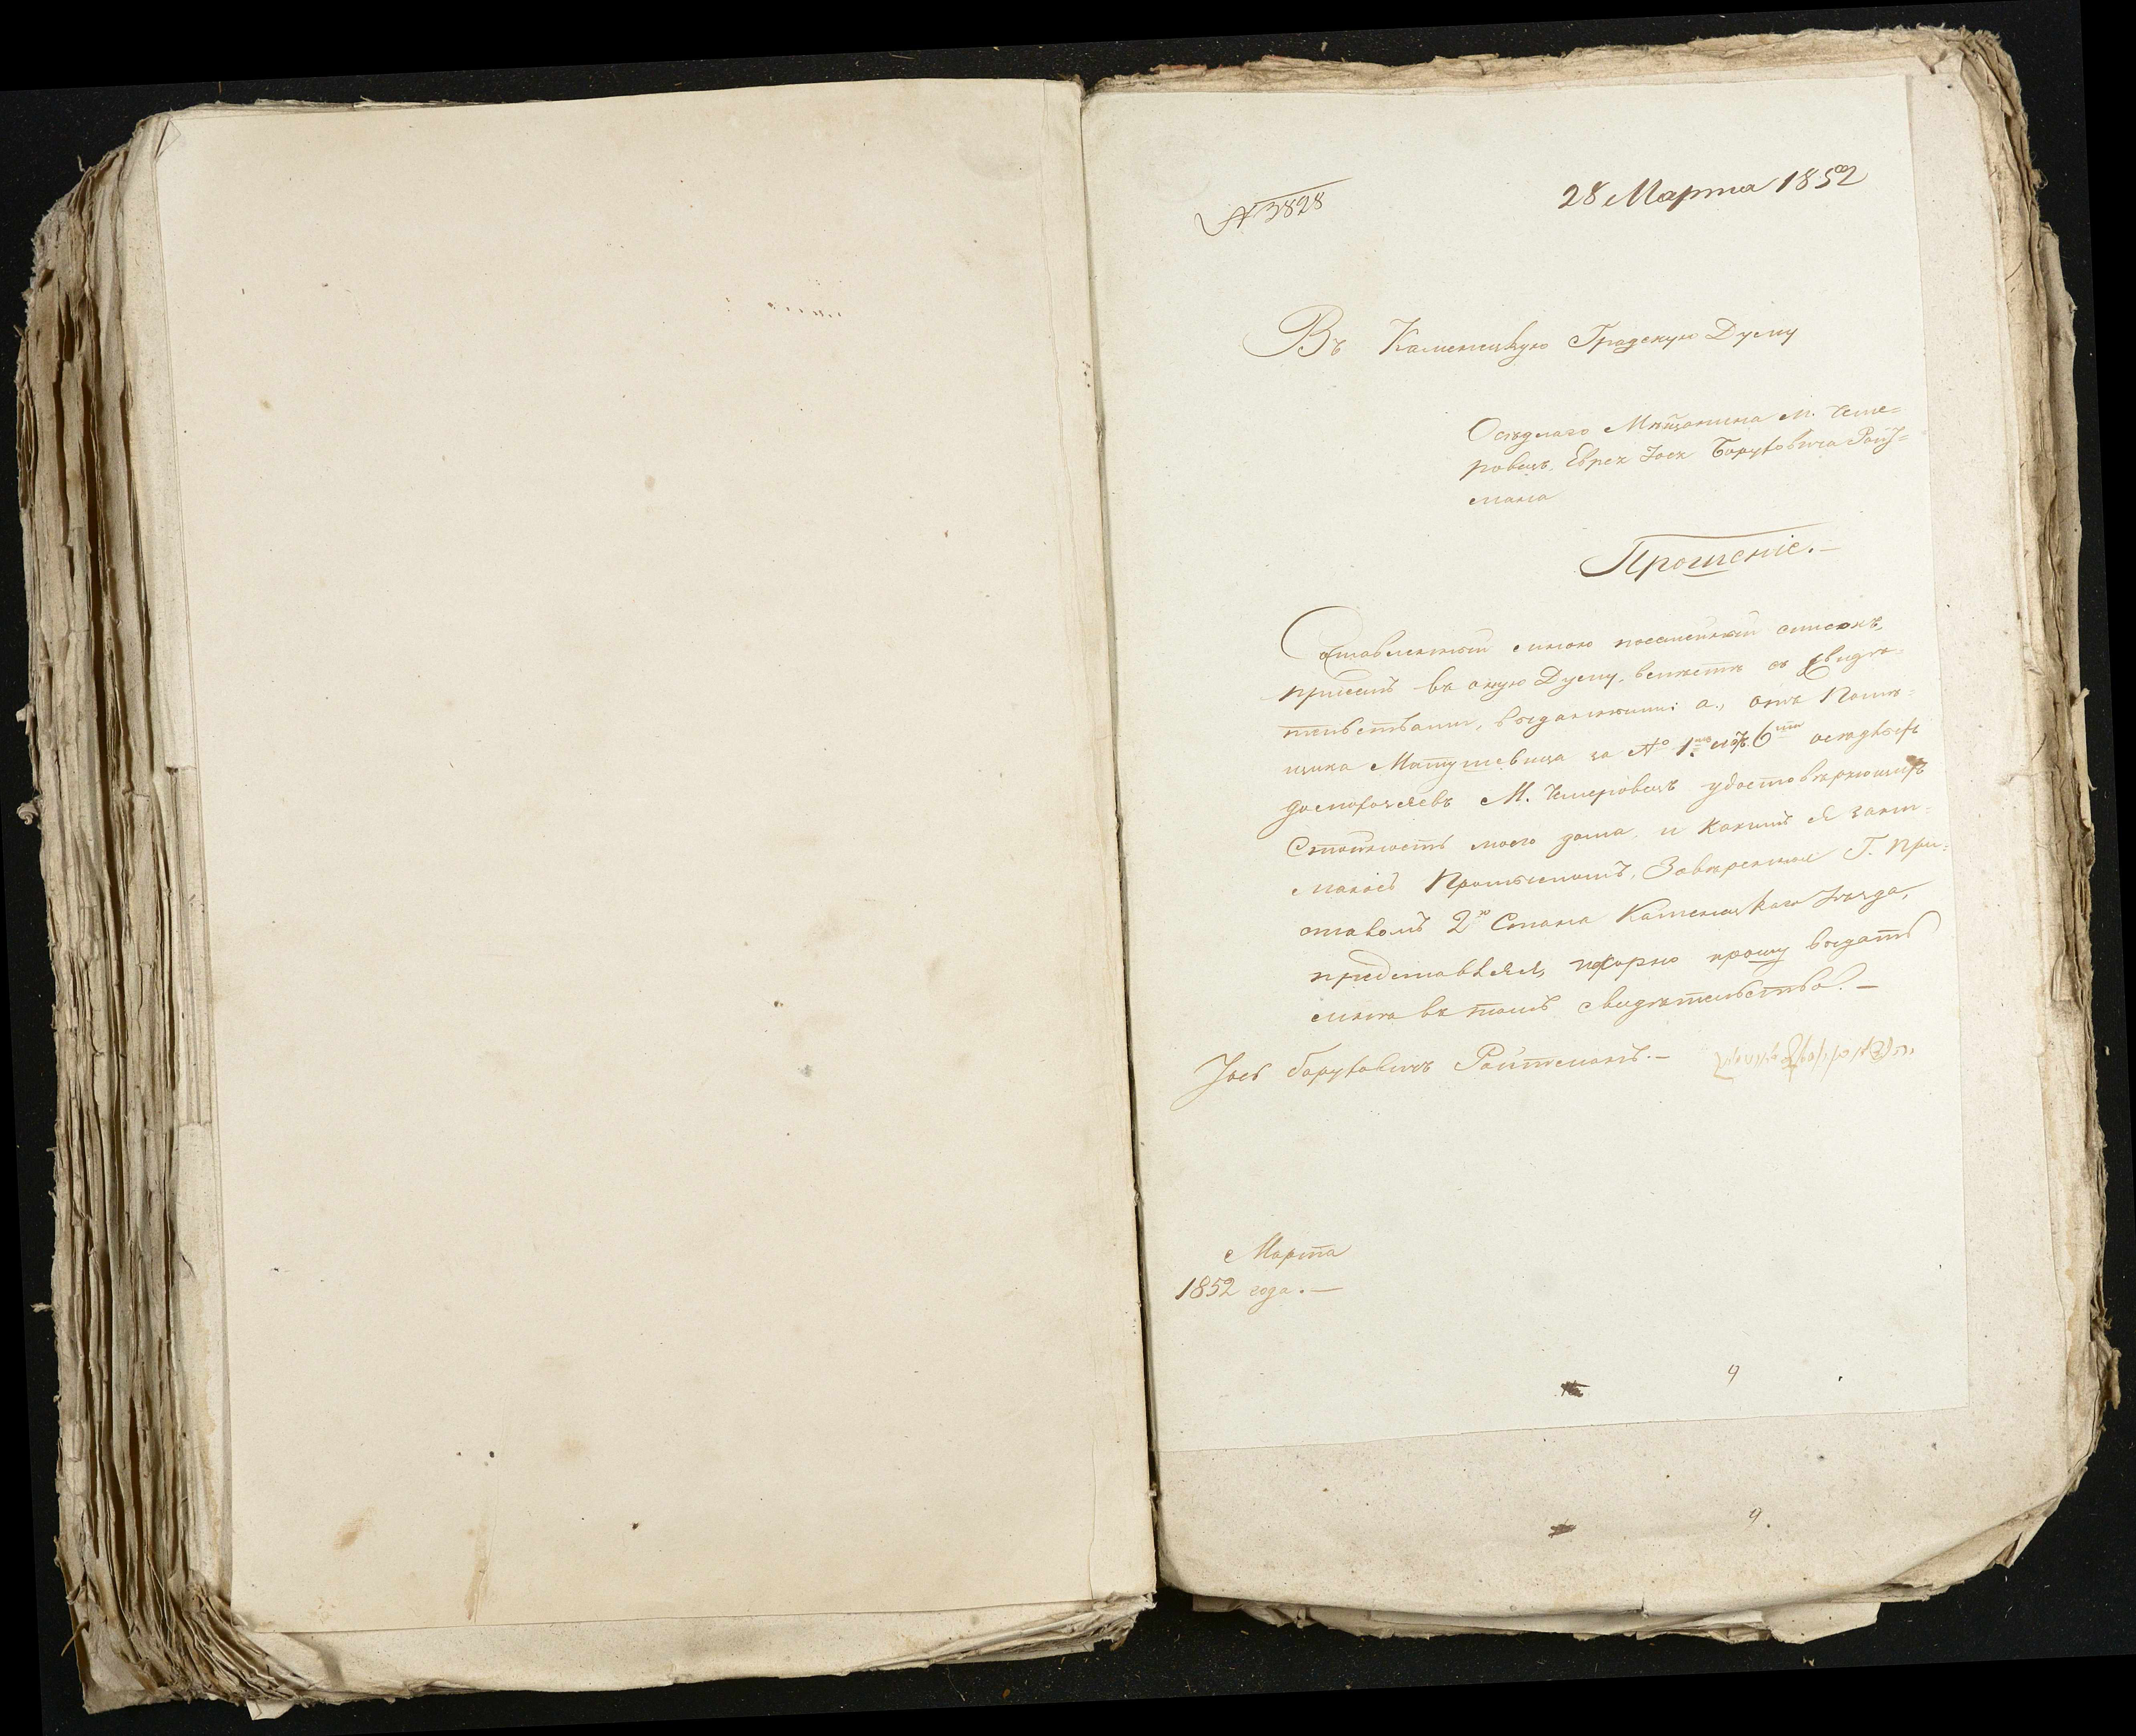 № 3828
28 Марта 1852
Въ Каменецкую Градскую Думу
Осѣдлаго Мѣщанина М. Чеме=
ровецъ, Еврея Іося Боруховича Рой=
мана
Прошеніе.—
Составленный мною посемейный списокъ,
при семъ въ оную Думу, вместѣ съ Свидѣ=
тельствами, выданными: а., отъ Помѣ=
щика Матушевица за № 1 6 осѣдлыхъ
домохозяевъ М. Чемеровецъ удостовѣряющихъ
Стоимость моего дома, и какимъ я зани=
маюсь Промысломъ, Завѣренное Г. При=
ставомъ 2го Стана Каменецкаго Уѣзда,
представляя, покорно прошу выдать
мнѣ въ томъ свидѣтельство.—
Іось Боруховичъ Ройтманъ.—
Марта
1852 года.—
9
9.